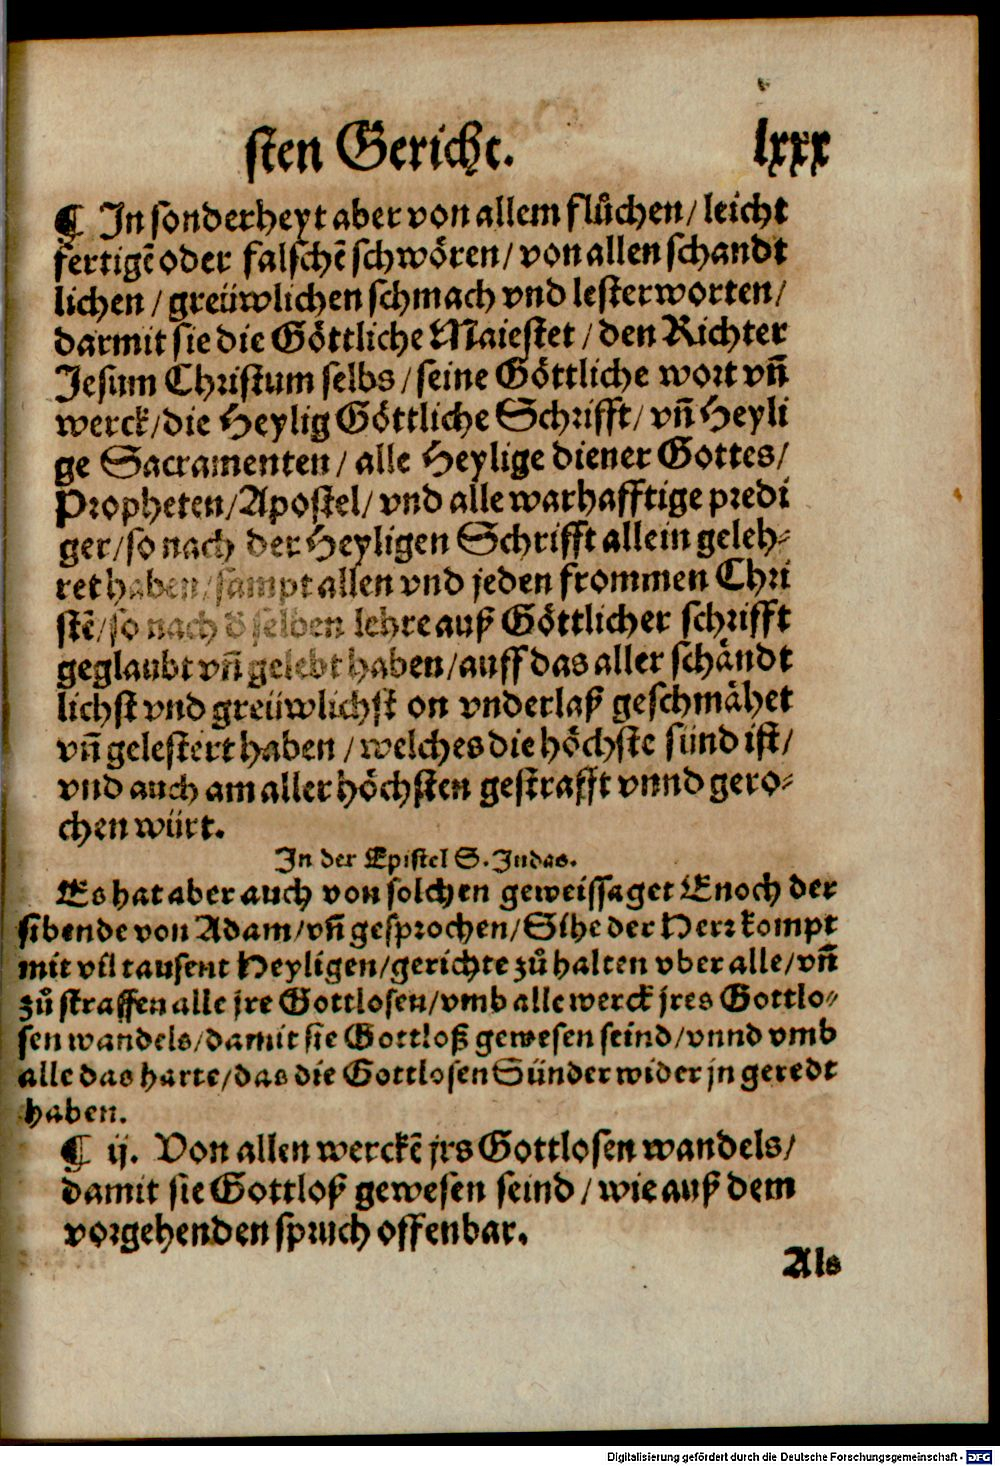 sten Gericht. lxxx
¶ In sonderheyt aber von allem flůchen/ leicht
fertigẽ oder falschẽ schwören/ von allen schandt
lichen/ greüwlichen schmach vnd lesterworten/
darmit sie die Göttliche Maiestet/ den Richter
Jesum Christum selbs/ seine Göttliche wort vñ
werck/ die Heylig Göttliche Schrifft/ vñ Heyli
ge Sacramenten/ alle Heylige diener Gottes/
Propheten/ Apostel/ vnd alle warhafftige predi
ger/ so nach der Heyligen Schrifft allein geleh-
ret haben/ sampt allen vnd jeden frommen Chri
stẽ/ so nach d̕ selben lehre auß Göttlicher schrifft
geglaubt vñ gelebt haben/ auff das aller schändt
lichst vnd greüwlichst on vnderlaß geschmähet
vñ gelestert haben/ welches die höchste sünd ist/
vnd auch am aller höchsten gestrafft vnnd gero-
chen würt.
In der Epistel S. Judas.
Es hat aber auch von solchen geweissaget Enoch der
sibende von Adam/ vñ gesprochen/ Sihe der Herr kompt
mit vil tausent Heyligen/ gerichte zů halten vber alle/ vñ
zů straffen alle jre Gottlosen/ vmb alle werck jres Gottlo-
sen wandels/ damit sie Gottloß gewesen seind/ vnnd vmb
alle das harte/ das die Gottlosen Sünder wider jn geredt
haben.
¶ ij. Von allen werckẽ jrs Gottlosen wandels/
damit sie Gottloß gewesen seind/ wie auß dem
vorgehenden spruch offenbar.
Als
Digitalisierung gefördert durch die Deutsche Forschungsgemeinschaft - DFG